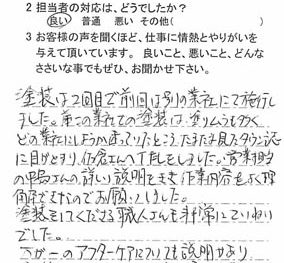 2 担当者の対応は、どうでしたか？
良い　普通　悪い　その他（　　　）
3 お客様の声を聞くほど、仕事に情熱とやりがいを
与えて頂いています。 良いこと、悪いこと、どんな
ささいな事でもぜひ、お聞かせ下さい。
塗装は2回目で前回は別の業社にて施行し
ました。前の業社での塗装は塗りムラもあり
どの業社にしようか迷っていたところたまたま見たタウン誌
に目がとまり、さんへTELをしました。営業担当
のさんの詳しい説明をきき作事内容もよく理
解できたのでお願いしました。
塗装をしてくださる職人さんも非常にていねい
でした。
万が一のアフターケアについても説明があり